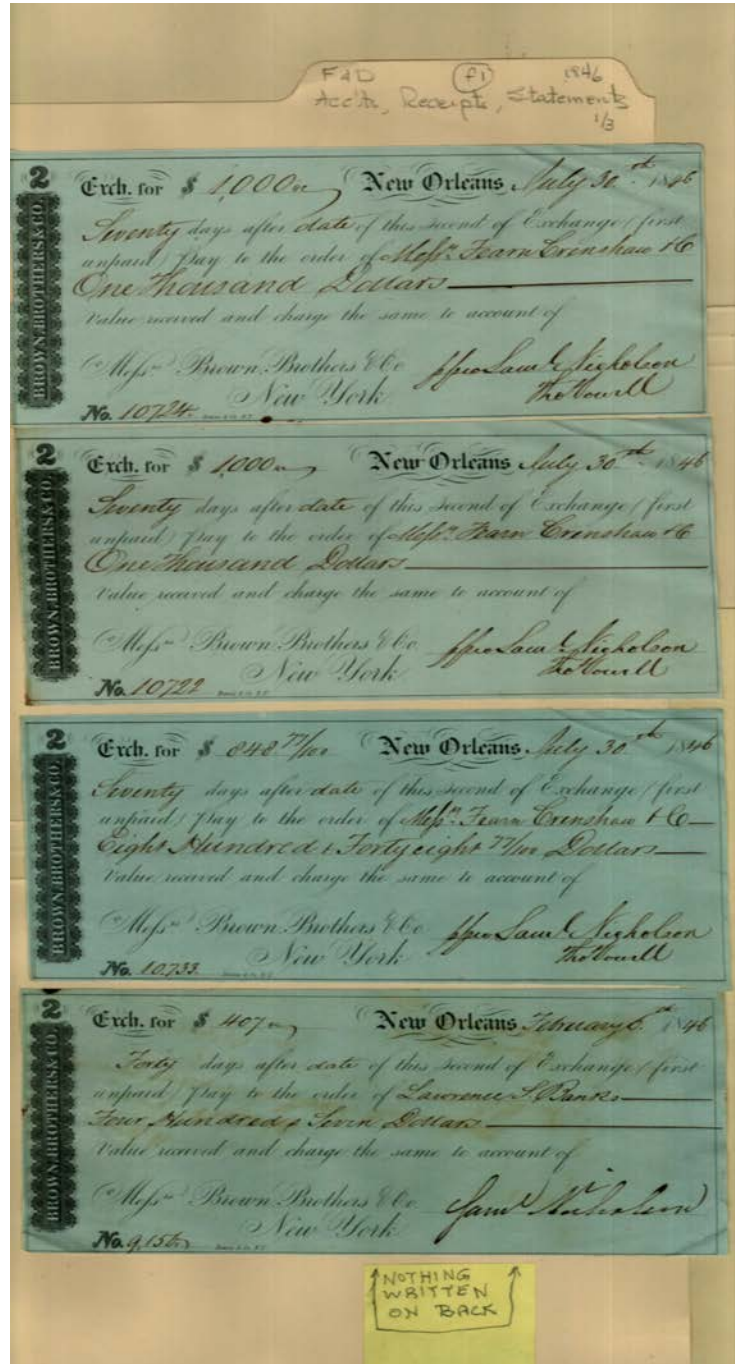 F&D (f1) 1846
Acc'ts, Receipts, Statements
1/3
2
BROWN, BROTHERS & CO.
Exch. for $ 1,000 New Orleans July 30th 1846
Seventy days after date of this second of Exchange (first
unpaid) Pay to the order of Messrs. Fearn Crenshaw & Co
One Thousand Dollars
Value received and charge the same to account of
Messrs Brown Brothers & Co ppro Saml Nicholson
New York Tho Vowell
No. 10724
2
BROWN, BROTHERS & CO.
Exch. for $ 1,000 New Orleans July 30th 1846
Seventy days after date of this second of Exchange (first
unpaid) Pay to the order of Messrs. Fearn Crenshaw & Co
One Thousand Dollars
Value received and charge the same to account of
Messrs Brown Brothers & Co ppro Saml Nicholson
New York Tho Vowell
No. 10722
2
BROWN, BROTHERS & CO.
Exch. for $ 848 77/100 New Orleans July 30th 1846
Seventy days after date of this second of Exchange (first
unpaid) Pay to the order of Messrs. Fearn Crenshaw & Co
Eight Hundred & Forty eight 77/100 Dollars
Value received and charge the same to account of
Messrs Brown Brothers & Co ppro Saml Nicholson
New York Tho Vowell
No. 10733
2
BROWN, BROTHERS & CO.
Exch. for $ 407 New Orleans February 6th 1846
Forty days after date of this second of Exchange (first
unpaid) Pay to the order of Lawrence S. Banks
Four Hundred & Seven Dollars
Value received and charge the same to account of
Messrs Brown Brothers & Co Saml Nicholson
New York
No. 9,156
NOTHING
WRITTEN
ON BACK